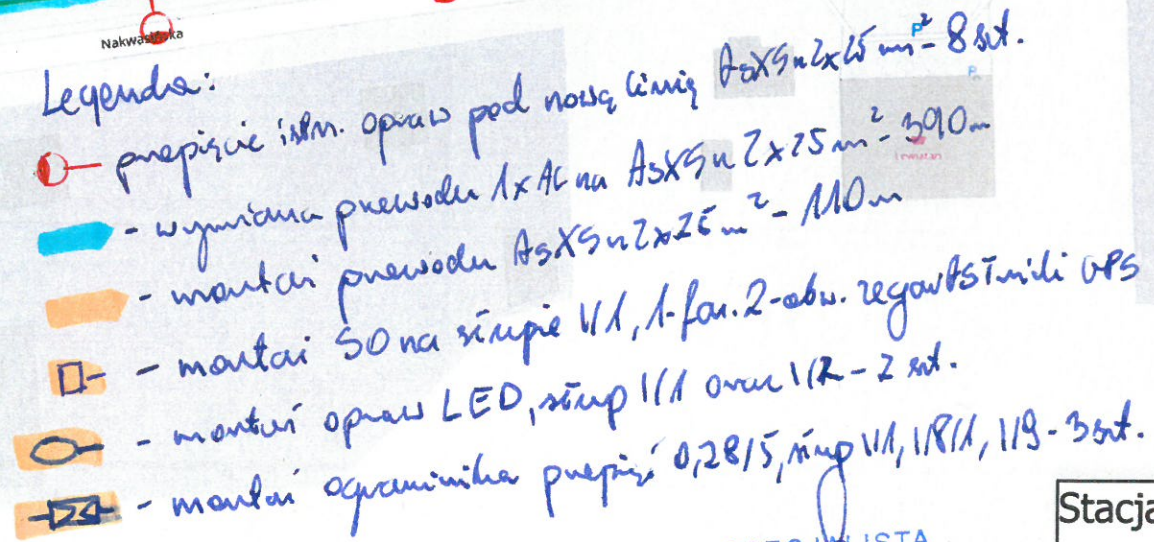 Nakwasińska
Legenda:
przepięcie istn. opraw pod nową linię AsXSn 2x25 mm² - 8 szt.
P
P
- wymiana przewodu 1xAL na AsXSn 2x25 mm² - 390 m
Lewiatan
- montaż przewodu AsXSn 2x25 mm² - 110 m
- montaż SO na słupie 1/1, 1-faz. 2-obw. zegar GPS
- montaż opraw LED, słup 1/1 oraz 1/2 - 2 szt.
- montaż ogranicznika przepięć 0,28/5, słup 1/1, 1/8/1, 1/9 - 3 szt.
Stacja